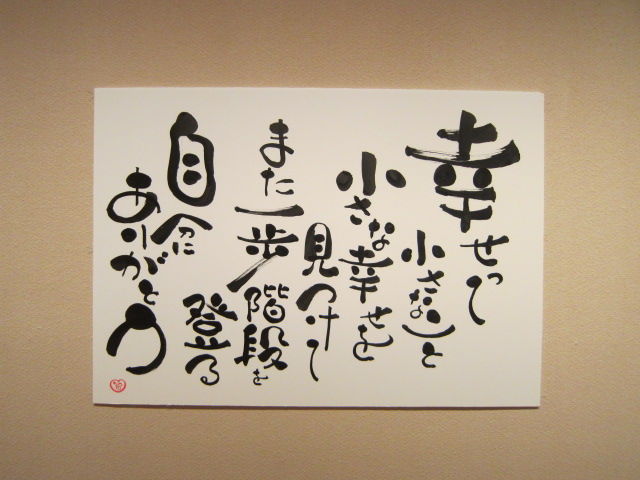 幸せって
小さなこと
小さな幸せを
見つけて
また一歩階段を
登る
自分に
ありがとう